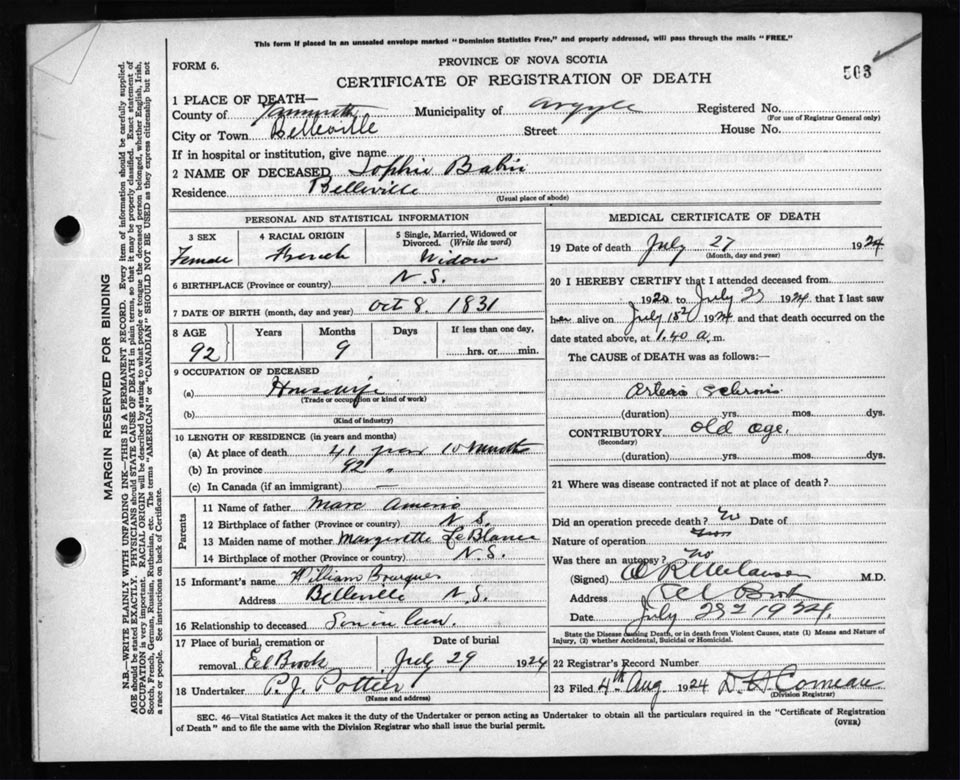 This form if placed in an unsealed envelope marked "Dominion Statistics Free," and properly addressed, will pass through the mails "FREE."
FORM 6.
PROVINCE OF NOVA SCOTIA
CERTIFICATE OF REGISTRATION OF DEATH
503
1 PLACE OF DEATH—
County of Yarmouth Municipality of Argyle Registered No.
(For use of Registrar General only)
City or Town Belleville Street House No.
If in hospital or institution, give name
2 NAME OF DECEASED Sophie Babin
Residence Belleville
(Usual place of abode)
PERSONAL AND STATISTICAL INFORMATION
3 SEX 4 RACIAL ORIGIN 5 Single, Married, Widowed or Divorced. (Write the word)
Female French Widow
6 BIRTHPLACE (Province or country) N.S.
7 DATE OF BIRTH (month, day and year) Oct 8. 1831
8 AGE Years Months Days If less than one day,
92 9 hrs. or min.
9 OCCUPATION OF DECEASED
(a) Housewife
(Trade or occupation or kind of work)
(b)
(Kind of industry)
10 LENGTH OF RESIDENCE (in years and months)
(a) At place of death 41 years 10 months
(b) In province 92 "
(c) In Canada (if an immigrant) —
Parents
11 Name of father Marc
12 Birthplace of father (Province or country) N.S.
13 Maiden name of mother Marguerette LeBlanc
14 Birthplace of mother (Province or country) N.S.
15 Informant's name William Bourques
Address Belleville N.S.
16 Relationship to deceased Son in law.
17 Place of burial, cremation or Date of burial
removal Eel Brook July 29 1924
18 Undertaker P. J. Pottier
(Name and address)
MEDICAL CERTIFICATE OF DEATH
19 Date of death July 27 1924
(Month, day and year)
20 I HEREBY CERTIFY that I attended deceased from
1920 to July 27 1924 that I last saw
her alive on July 1924 and that death occurred on the
date stated above, at 1.40 a.m.
The CAUSE of DEATH was as follows:—
Arterio Sclerosis
(duration) yrs. mos. dys.
CONTRIBUTORY old age.
(Secondary)
(duration) yrs. mos. dys.
21 Where was disease contracted if not at place of death?
Did an operation precede death? No Date of
Nature of operation
Was there an autopsy? no
(Signed) M.D.
Address Eel Brook
Date July 1924.
State the Disease causing Death, or in death from Violent Causes, state (1) Means and Nature of Injury, (2) whether Accidental, Suicidal or Homicidal.
22 Registrar's Record Number
23 Filed 4th Aug 1924 D. H. Comeau
(Division Registrar)
SEC. 46—Vital Statistics Act makes it the duty of the Undertaker or person acting as Undertaker to obtain all the particulars required in the "Certificate of Registration
of Death" and to file the same with the Division Registrar who shall issue the burial permit. (OVER)
MARGIN RESERVED FOR BINDING
N.B.—WRITE PLAINLY WITH UNFADING INK—THIS IS A PERMANENT RECORD. Every item of information should be carefully supplied.
AGE should be stated EXACTLY. PHYSICIANS should STATE CAUSE OF DEATH in plain terms, so that it may be properly classified. Exact statement of
OCCUPATION is very important. RACIAL ORIGIN will be described by stating to what people or tongue the deceased person belonged, whether English, Irish,
Scotch, French, German, Russian, Ruthenian, etc. The terms "AMERICAN" or "CANADIAN" SHOULD NOT BE USED as they express citizenship but not
a race or people. See instructions on back of Certificate.